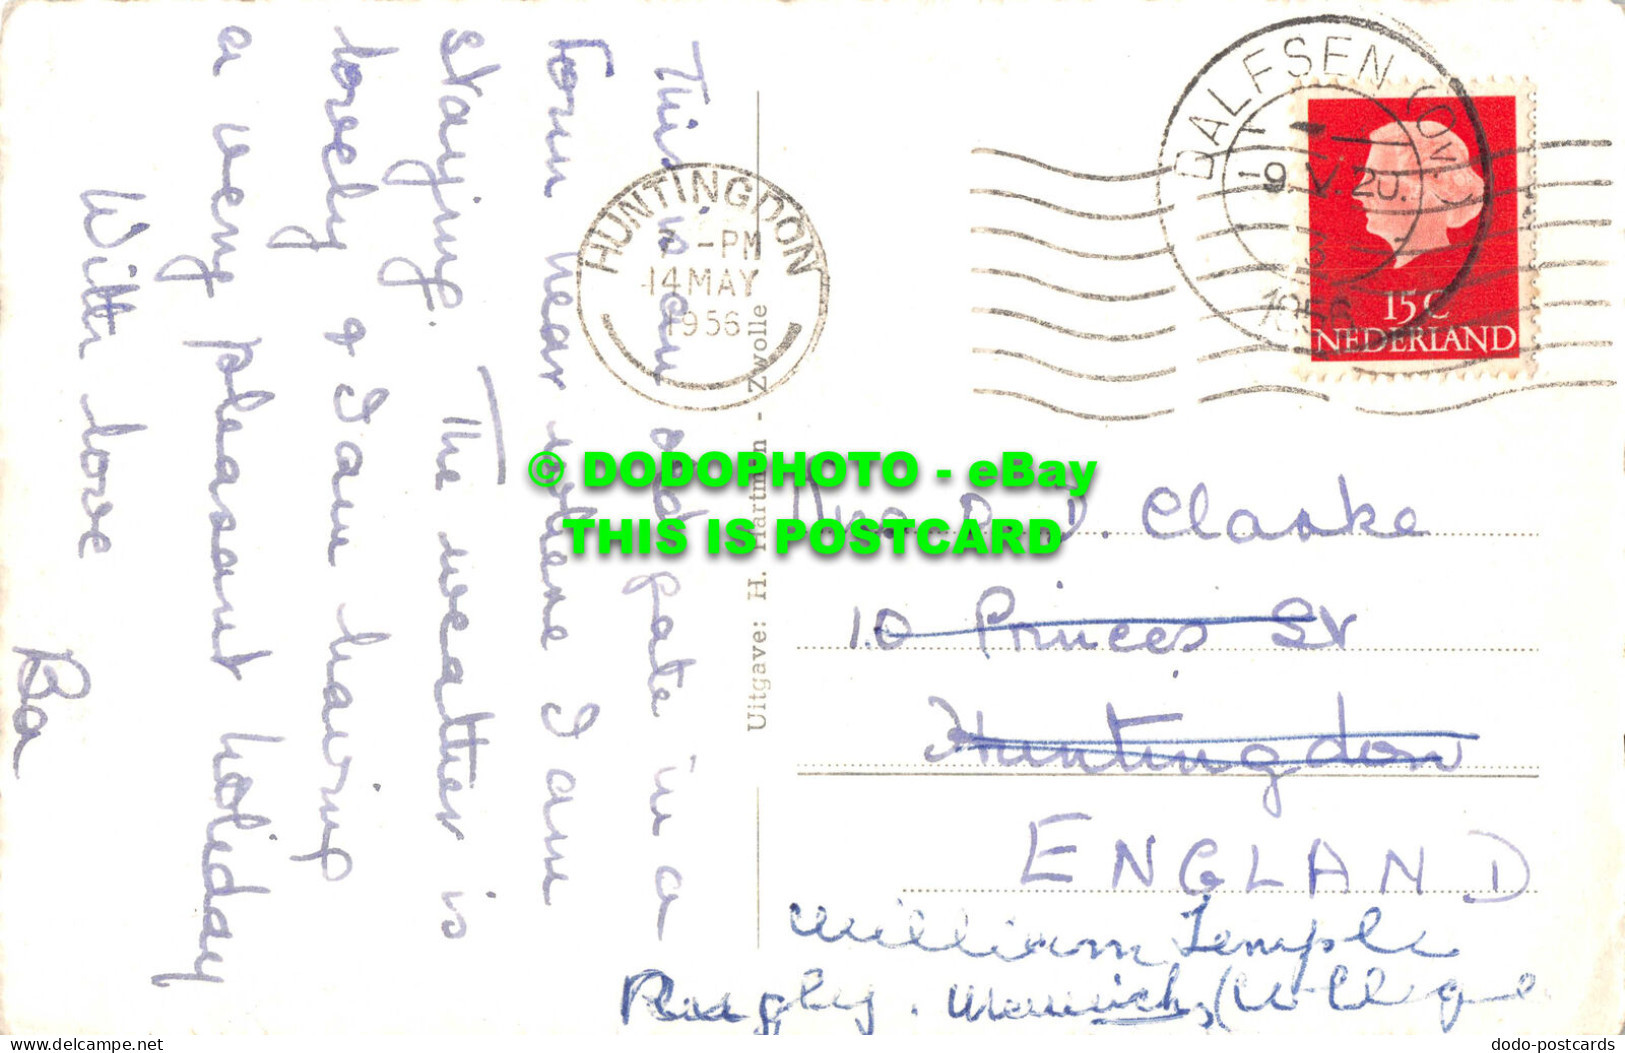 This is an old gate in a
town near where I am
staying. The weather is
lovely & I am having
a very pleasant holiday
With love
Ba
Uitgave: H. Hartman - Zwolle
HUNTINGDON
-PM
14 MAY
1956
DALFSEN (Ov.)
-9.V.20.
3
1956
15 C
NEDERLAND
© DODOPHOTO - eBay
THIS IS POSTCARD
D. Clarke
10 Princes St
Huntingdon
ENGLAND
William Temple
Rugby. Warwicks, College
www.delcampe.net
dodo-postcards